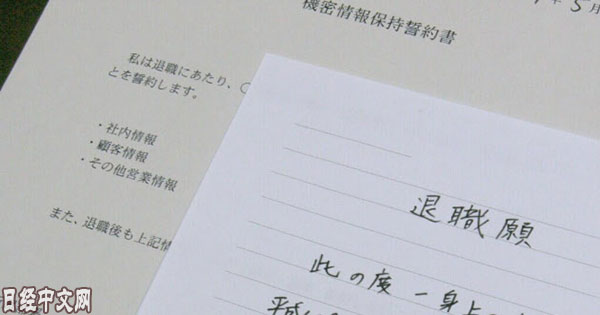 5月
機密情報保持誓約書
私は退職にあたり、
とを誓約します。
・社内情報
・顧客情報
・その他営業情報
また、退職後も上記情
退職願
此の度 一身上の
平成
日经中文网